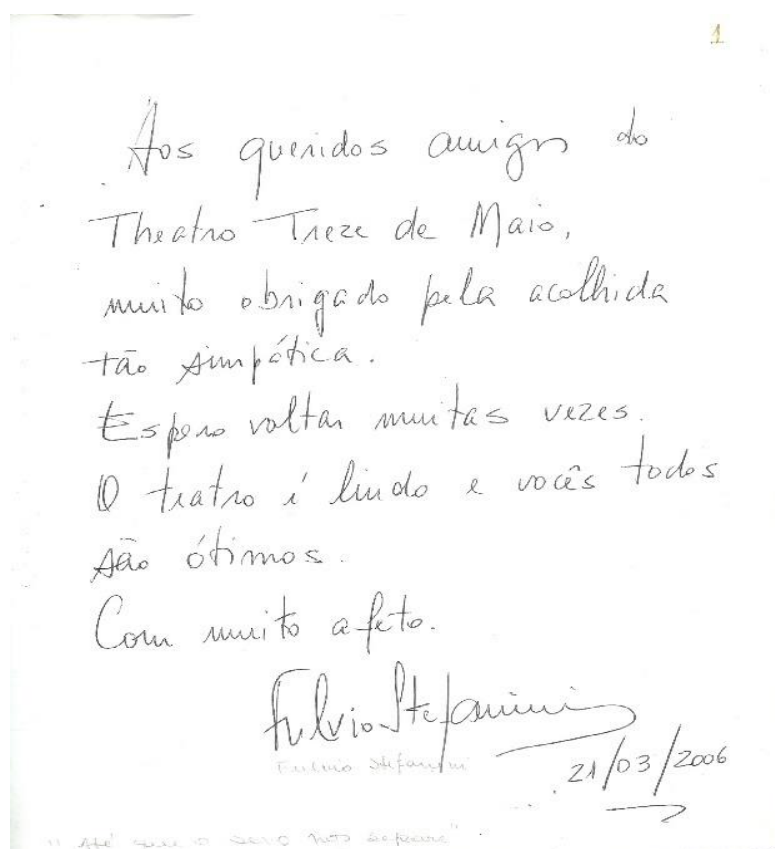 1
Aos queridos amigos do
Theatro Treze de Maio,
muito obrigado pela acolhida
tão simpática.
Espero voltar muitas vezes.
O teatro é lindo e vocês todos
são ótimos.
Com muito afeto.
Fulvio Stefanini
Fulvio Stefanini
21/03/2006
"Até que o sexo nos separe"